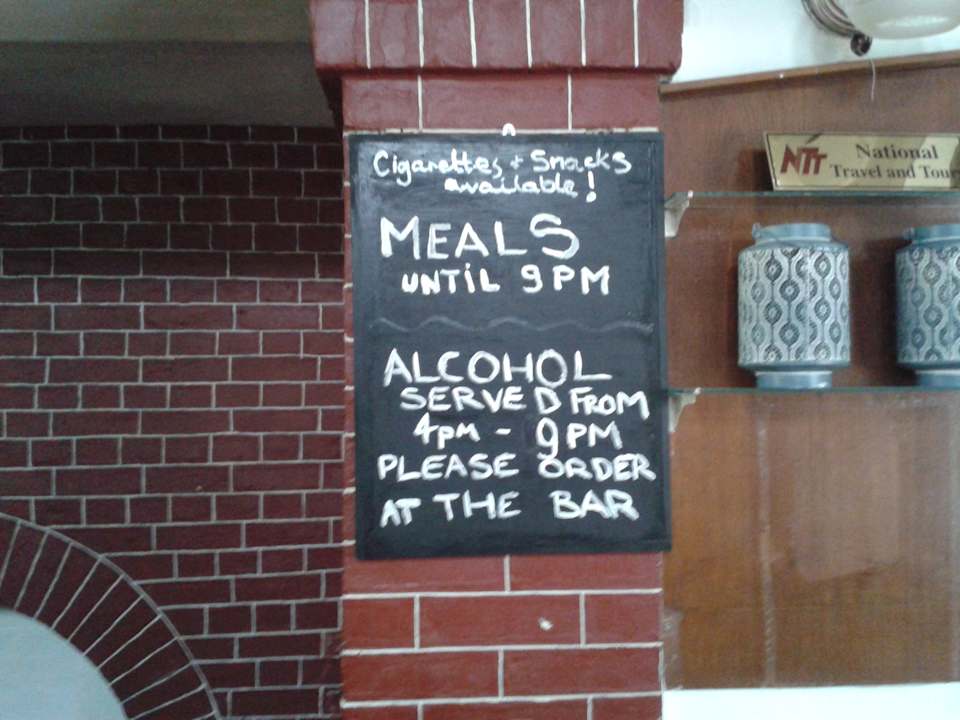 Cigarettes + Snacks
available!
MEALS
UNTIL 9PM
ALCOHOL
SERVED FROM
4PM - 9PM
PLEASE ORDER
AT THE BAR
NTT National
Travel and Tour